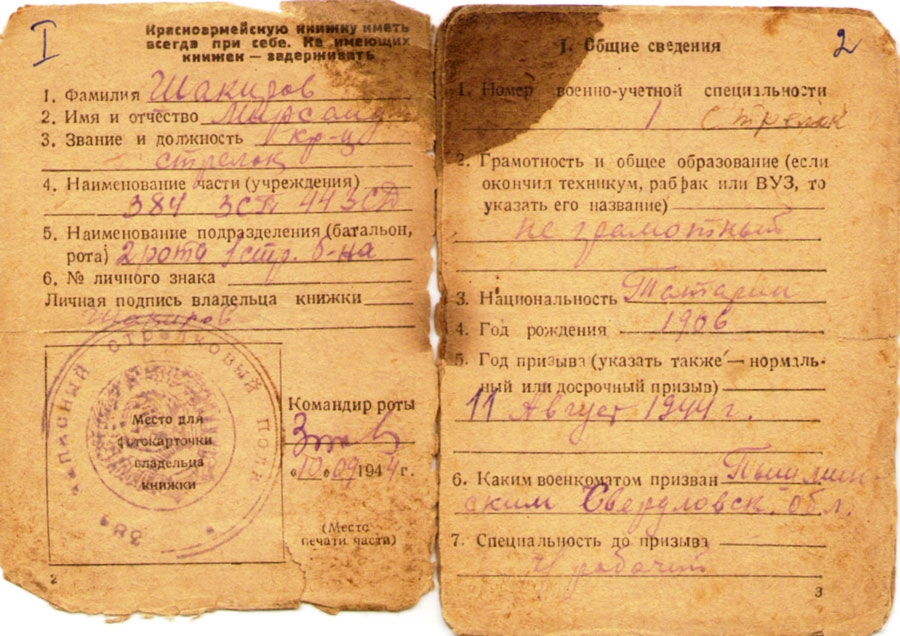 I
Красноармейскую книжку иметь
всегда при себе. Не имеющих
книжек — задерживать
1. Фамилия Шакиров
2. Имя и отчество Мирсаид
3. Звание и должность кр-ц
стрелок
4. Наименование части (учреждения)
384 ЗСП 44 ЗСД
5. Наименование подразделения (батальон,
рота) 2 рота 1 стр. б-на
6. № личного знака
Личная подпись владельца книжки
Шакиров
Место для
фотокарточки
владельца
книжки
запасный стрелковый полк
Командир роты
«10» 09 1944 г.
(Место
печати части)
2
2
I. Общие сведения
1. Номер военно-учетной специальности
1 стрелок
2. Грамотность и общее образование (если
окончил техникум, рабфак или ВУЗ, то
указать его название)
не грамотный
3. Национальность Татарин
4. Год рождения 1906
5. Год призыва (указать также — нормаль-
ный или досрочный призыв)
11 Август 1944 г.
6. Каким военкоматом призван Пышмин
ским Свердловск. обл.
7. Специальность до призыва
рабочий
3